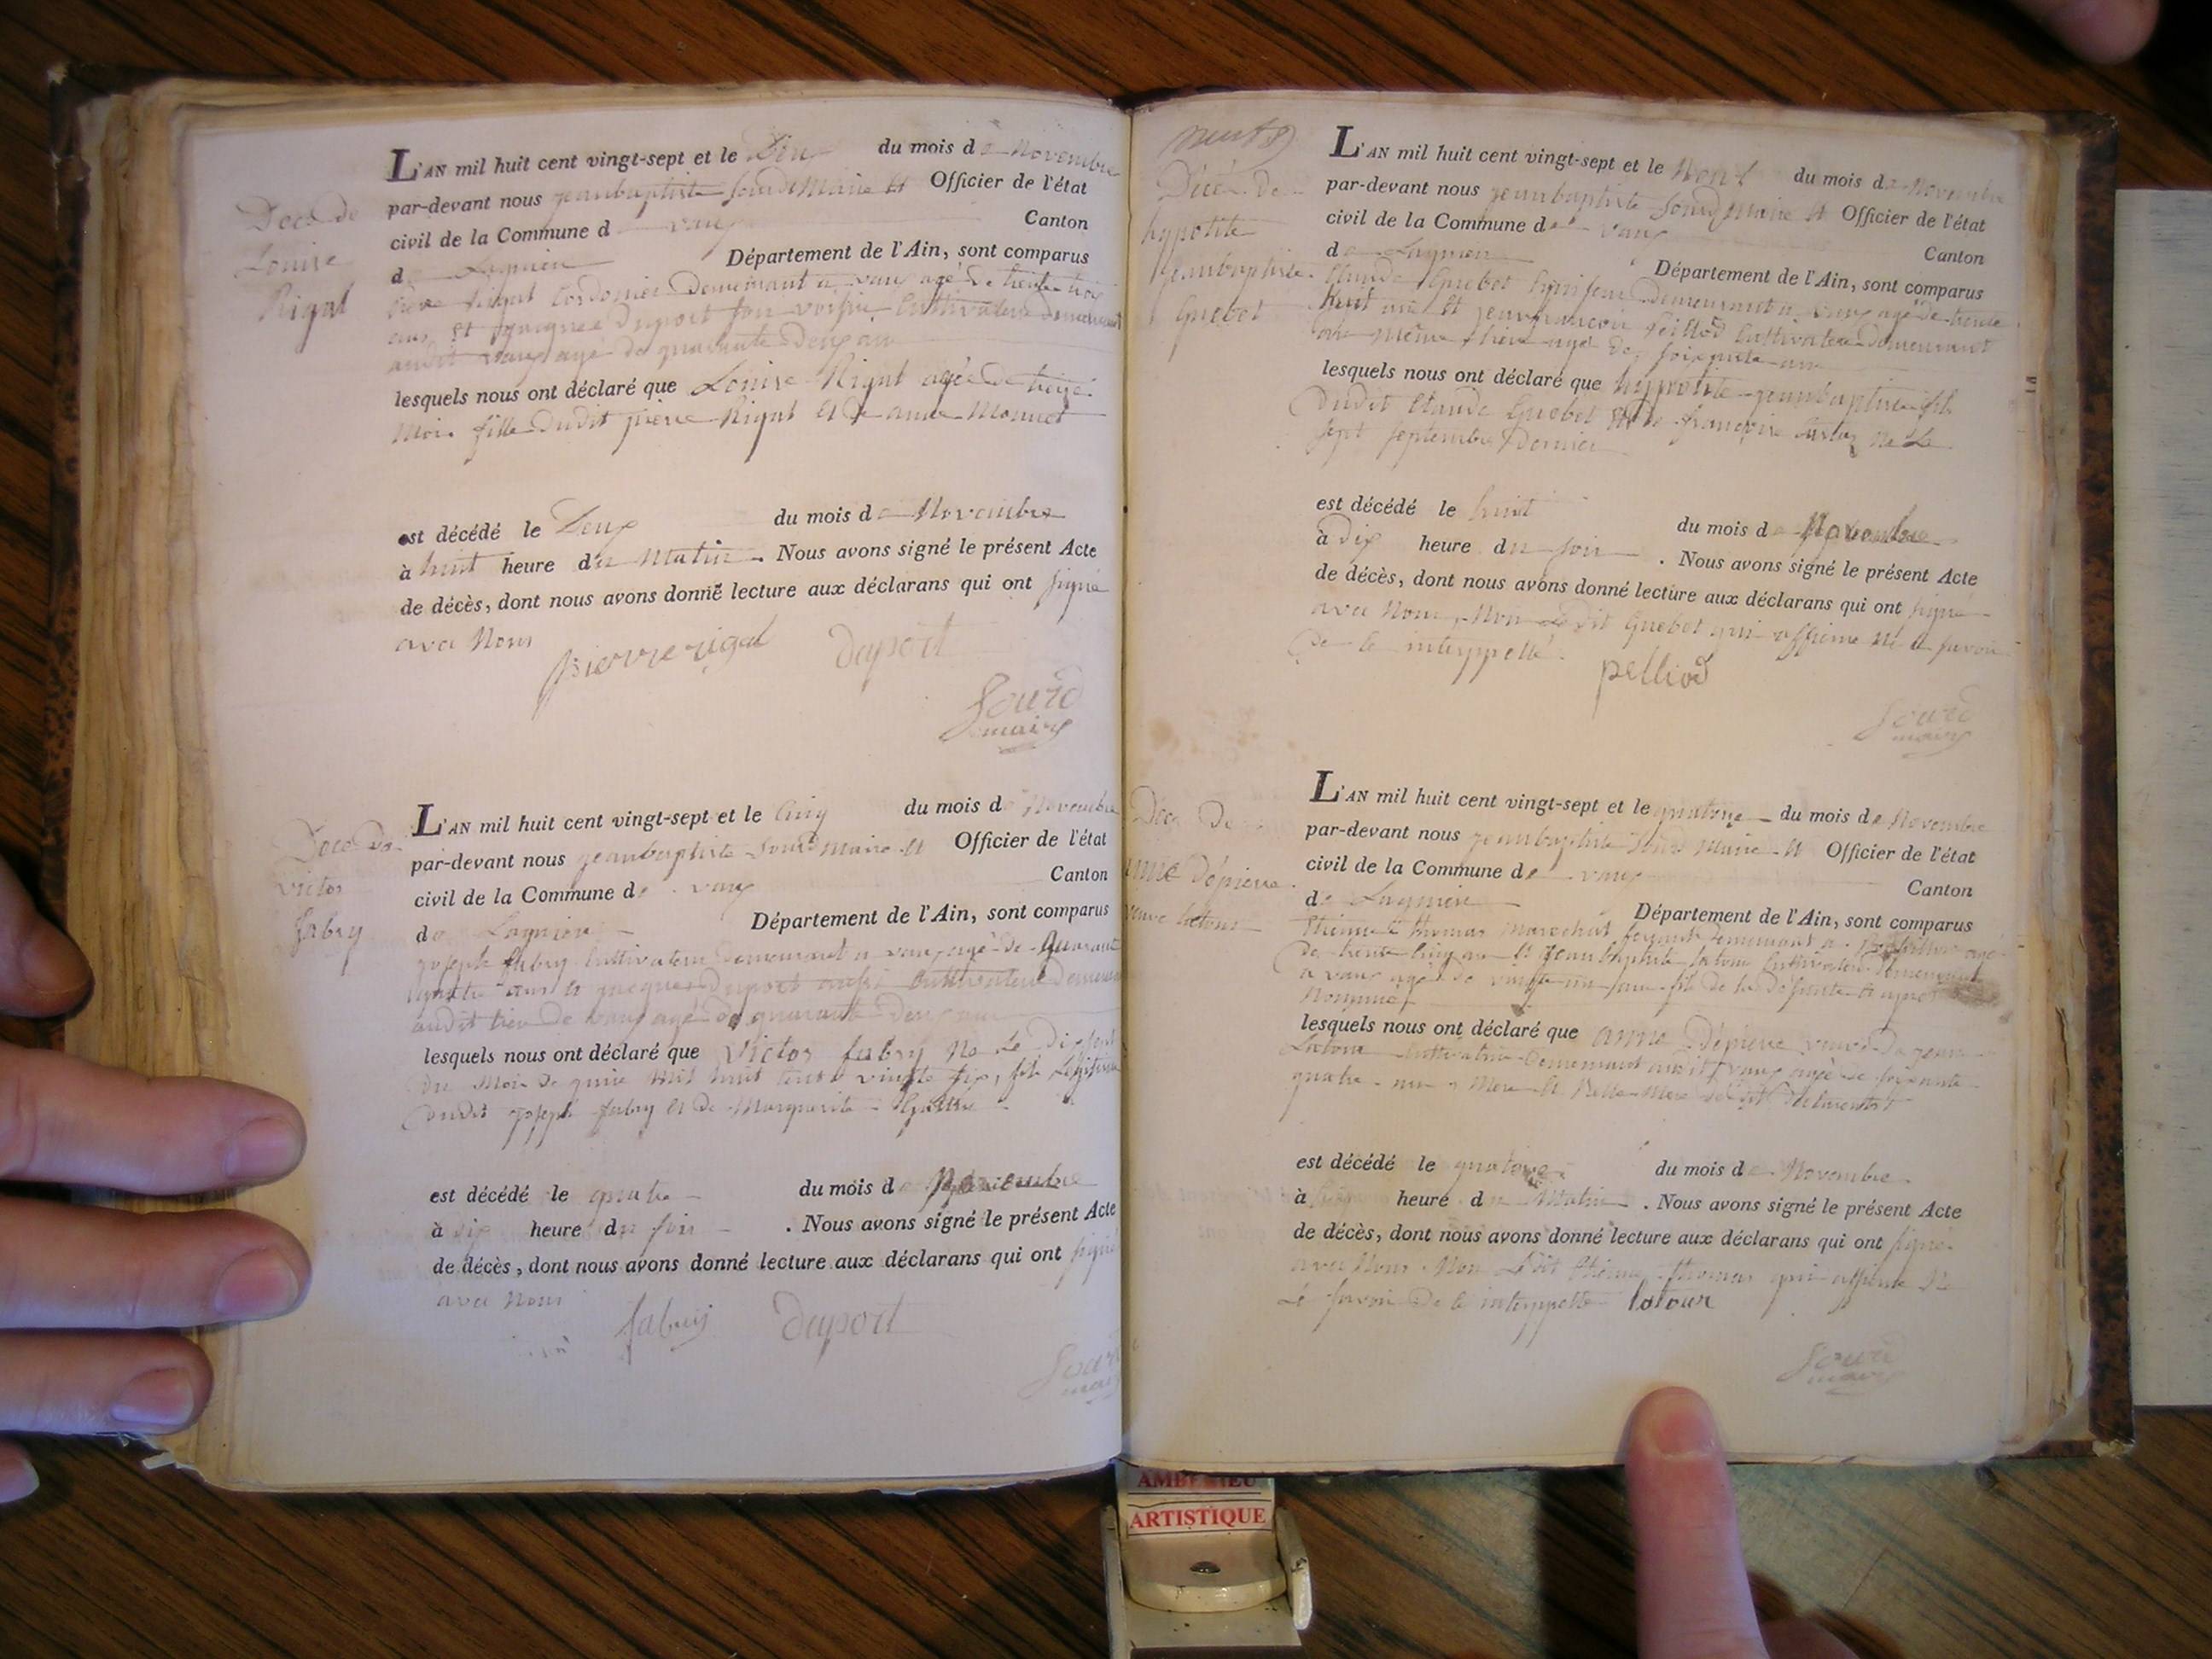 L'AN mil huit cent vingt-sept et le du mois de Novembre
par-devant nous jeanbaptiste sourd Maire et Officier de l'état
civil de la Commune d vaux Canton
de Lagnieu Département de l'Ain, sont comparus
Décé de
Louise
Rigal
Rigal Cordonier demeurant a vaux agé de trente trois
ans et jacques duport son voisin Cultivateur demeurant
audit vaux agé de quarante deux ans
lesquels nous ont déclaré que Louise Rigal agée de treize
Mois fille dudit pierre Rigal et de anne Monnet
est décédé le Deux du mois de Novembre
à huit heure du Matin. Nous avons signé le présent Acte
de décès, dont nous avons donné lecture aux déclarans qui ont signé
avec Nous
pierre rigal duport
Sourd
maire
L'AN mil huit cent vingt-sept et le Cinq du mois de Novembre
par-devant nous jeanbaptiste sourd Maire et Officier de l'état
civil de la Commune de vaux Canton
de Lagnieu Département de l'Ain, sont comparus
Décé de
victor
fabry
joseph fabry Cultivateur demeurant a vaux agé de quarante
quatre ans et jacques duport aussi Cultivateur demeurant
audit lieu de vaux agé de quarante deux ans
lesquels nous ont déclaré que victor fabry Né le dix sept
du Mois de Mil huit cent vingt six, fils légitime
dudit joseph fabry et de Marguerite
est décédé le quatre du mois de Novembre
à six heure du soir. Nous avons signé le présent Acte
de décès, dont nous avons donné lecture aux déclarans qui ont signé
avec Nous
fabry duport
Sourd
maire
L'AN mil huit cent vingt-sept et le Neuf du mois de Novembre
par-devant nous jeanbaptiste sourd Maire et Officier de l'état
civil de la Commune de vaux Canton
de Lagnieu Département de l'Ain, sont comparus
Décé de
hypolite
jeanbaptiste
Guebot
Claude Guebot demeurant a vaux agé de trente
huit ans et jeanfrançois Cultivateur demeurant
au même lieu agé de soixante ans
lesquels nous ont déclaré que hyppolite jeanbaptiste fils
dudit Claude Guebot et de françoise né le
sept septembre dernier
est décédé le huit du mois de Novembre
à dix heure du soir. Nous avons signé le présent Acte
de décès, dont nous avons donné lecture aux déclarans qui ont signé
avec Nous, Non Ledit Guebot qui affirme ne le savoir
de ce interppellé. pelliod
Sourd
maire
L'AN mil huit cent vingt-sept et le quatorze du mois de Novembre
par-devant nous jeanbaptiste sourd Maire et Officier de l'état
civil de la Commune de vaux Canton
de Lagnieu Département de l'Ain, sont comparus
Décé de
anne Dépierre
veuve latour
Etienne thomas Marechal demeurant a agé
de trente cinq ans et jeanbaptiste latour Cultivateur demeurant
a vaux agé de vingt un ans fils de la défunte et après
Nommée
lesquels nous ont déclaré que anne Dépierre veuve de jean
Latour Cultivatrice demeurant audit vaux agée de soixante
quatre ans, Mere et Belle-Mere
est décédé le quatorze du mois de Novembre
à heure du Matin. Nous avons signé le présent Acte
de décès, dont nous avons donné lecture aux déclarans qui ont signé
avec Nous Non Ledit Etienne thomas qui affirme Ne
le savoir de ce interppellé latour
Sourd
maire
ARTISTIQUE